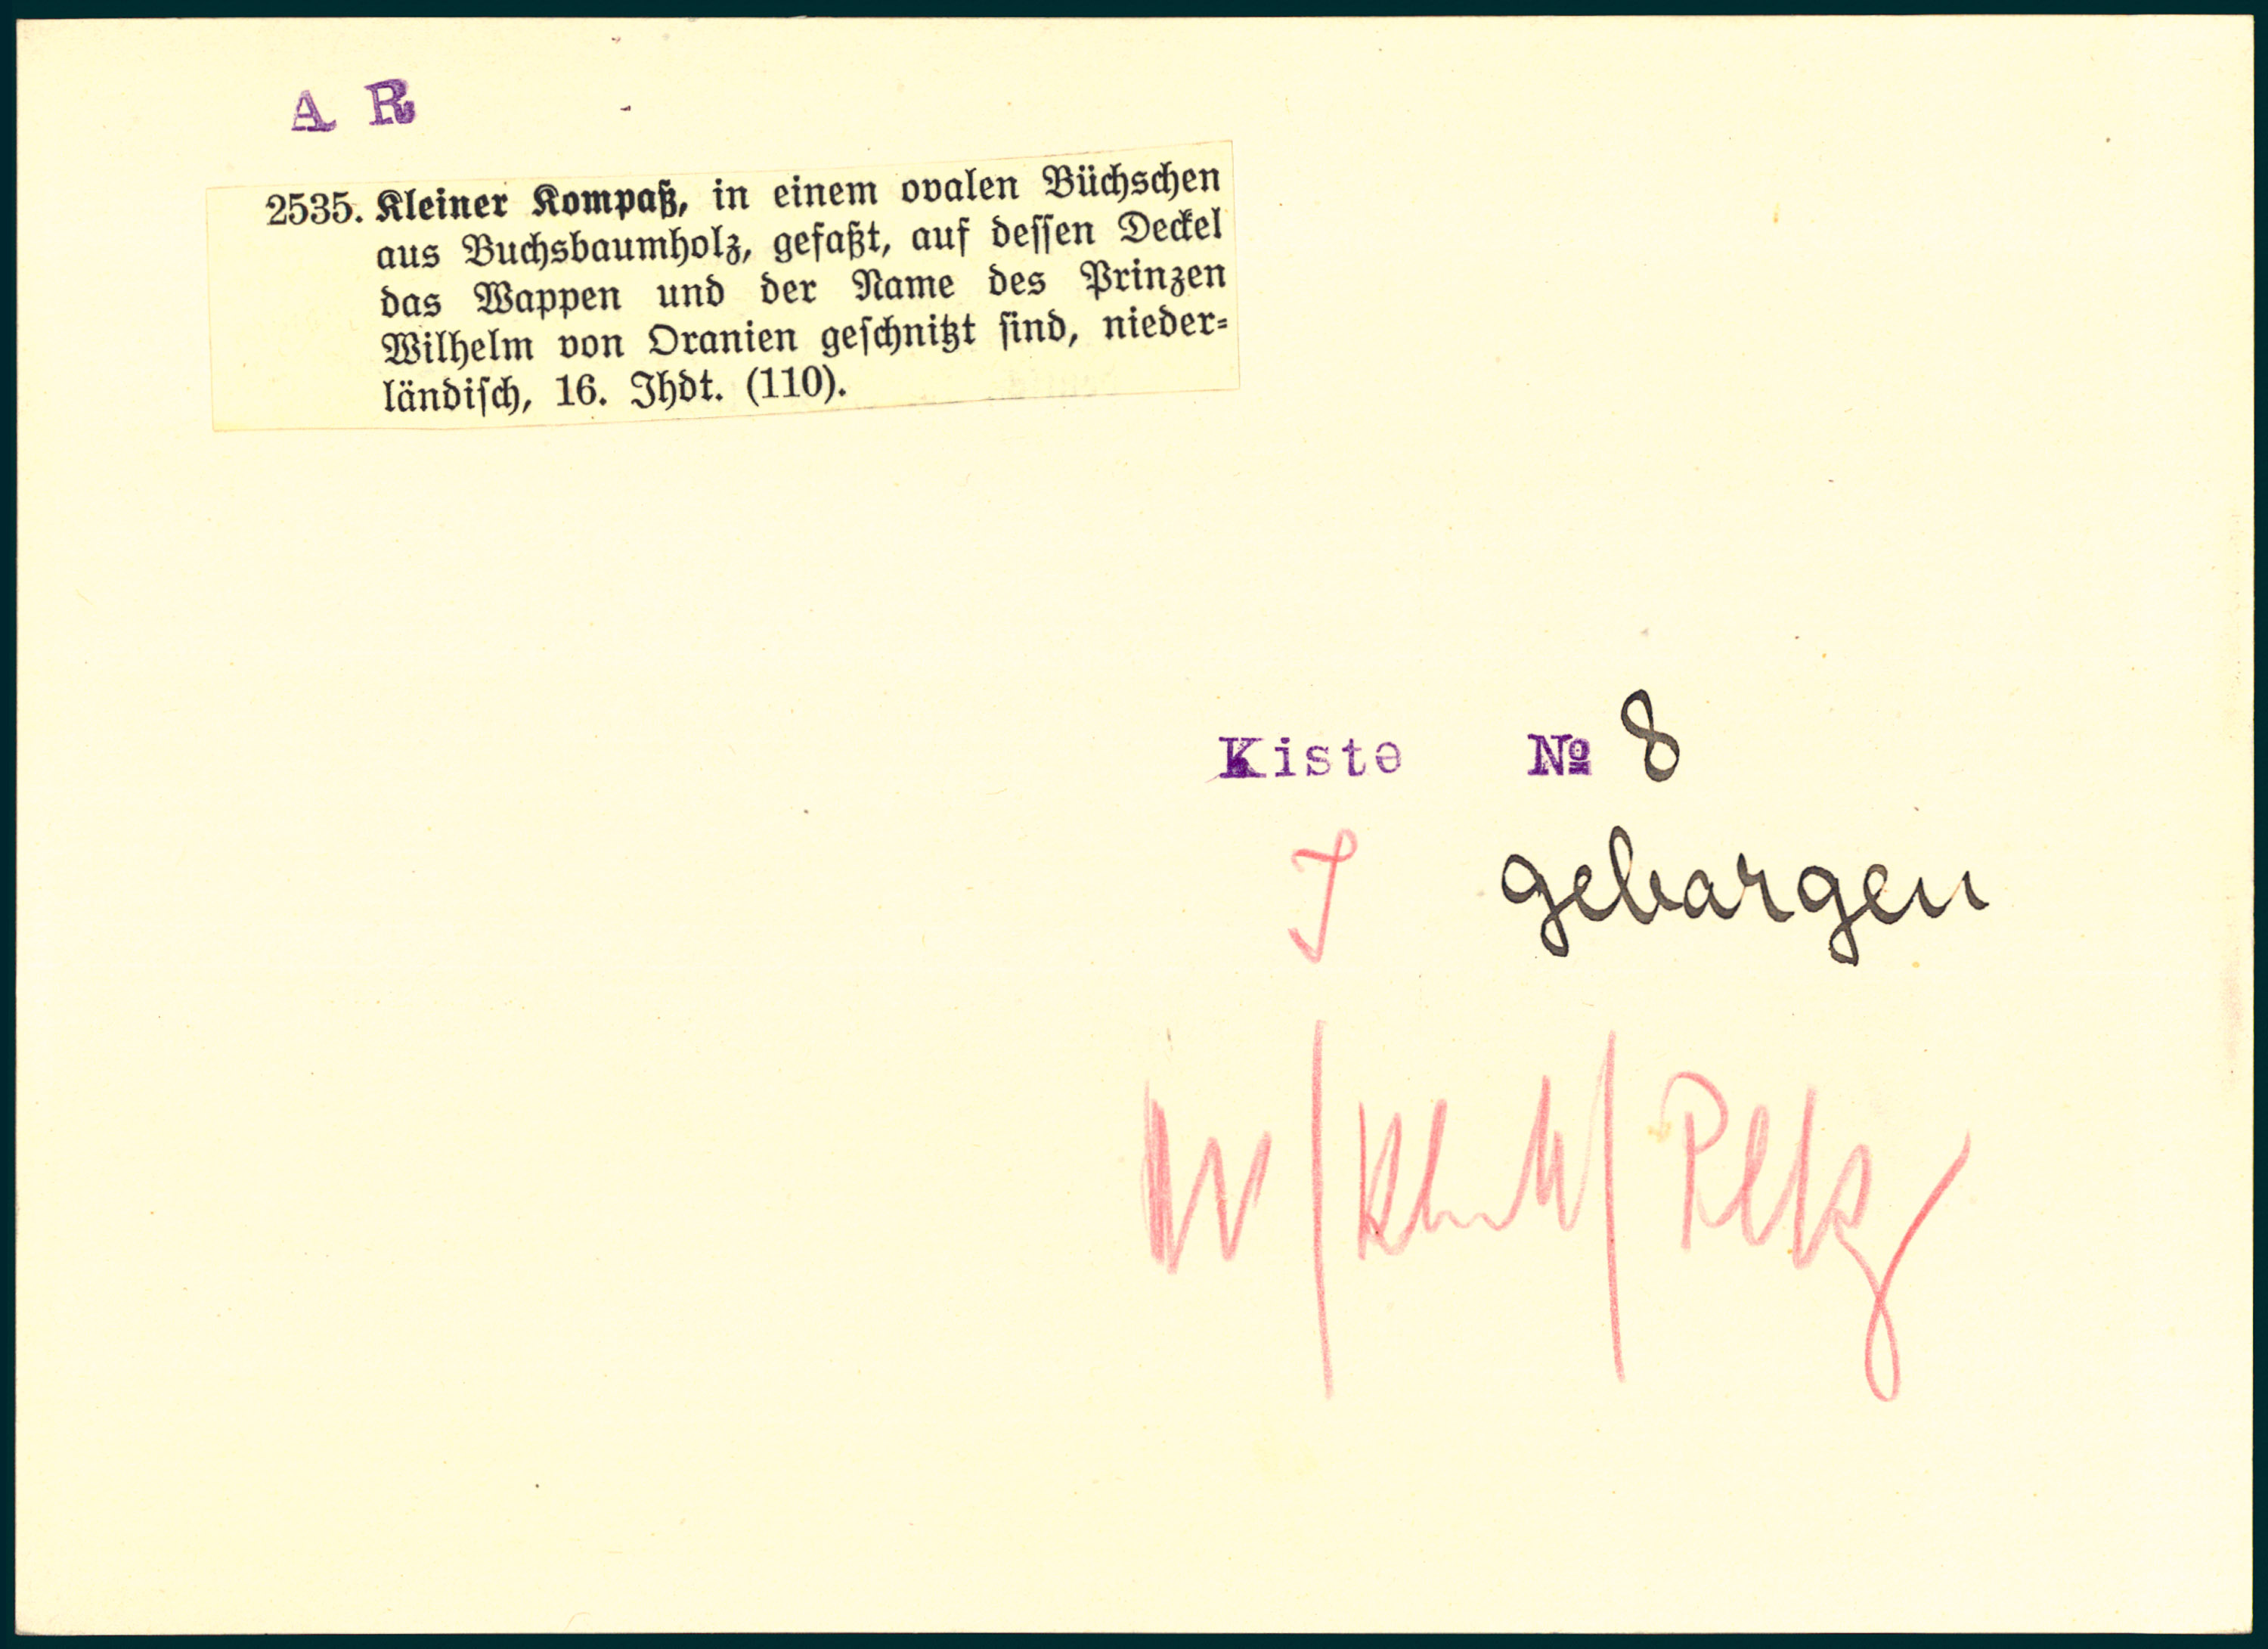 A R
2535. Kleiner Kompaß, in einem ovalen Büchschen
aus Buchsbaumholz, gefaßt, auf dessen Deckel
das Wappen und der Name des Prinzen
Wilhelm von Oranien geschnitzt sind, nieder-
ländisch, 16. Jhdt. (110).
Kiste № 8
J gebargen